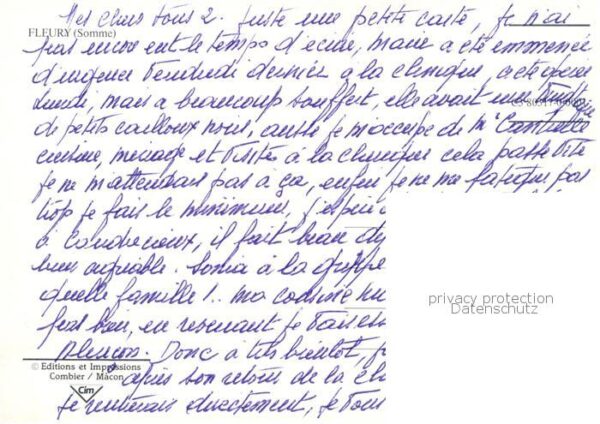 Mes chers tous 2. Juste une petite carte, je n'ai
FLEURY (Somme)
pas encore eut le temps d'ecrire, mamie a été emmenée
d'urgence Vendredi dernier a la clinique, a été opérée
Lundi, mais a beaucoup souffert, elle avait une
de petits cailloux noirs, aussi je m'occupe de Mr
cuisine, ménage et visites à la clinique cela passe vite
je ne m'attendais pas à ça, enfin je ne me fatigue pas
trop je fais le minimum, j'espère
à il fait beau
bien agréable. Sonia à la grippe
quelle famille !.. ma cousine
pas bien, en revenant je vais
Donc à très bientôt,
privacy protection
Datenschutz
© Editions et Impressions
Combier / Mâcon
Cim
après son retour de la
je rentrerais directement, je vous